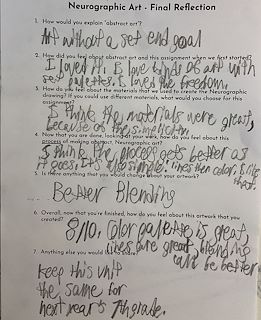 Neurographic Art - Final Reflection
1. How would you explain "abstract art"?
Art without a set end goal
2. How did you feel about abstract art and this assignment when we first started?
I loved it, I love kinds of art with
set palettes, I loved the freedom.
3. How do you feel about the materials that we used to create the Neurographic
drawing? If you could use different materials, what would you choose for this
assignment?
I think the materials were great,
because of the simplicity.
4. Now that you are done, looking at your work, how do you feel about this
process of making abstract, Neurographic art?
I think the process gets better as
it goes. It's so simple. lines then color. I like
that.
5. Is there anything that you would change about your artwork?
Better Blending
6. Overall, now that you're finished, how do you feel about this artwork you
created?
8/10. Color palette is great,
lines are great, blending
could be better
7. Anything else you would like to share?
keep this unit
the same for
next year's 7th grade.